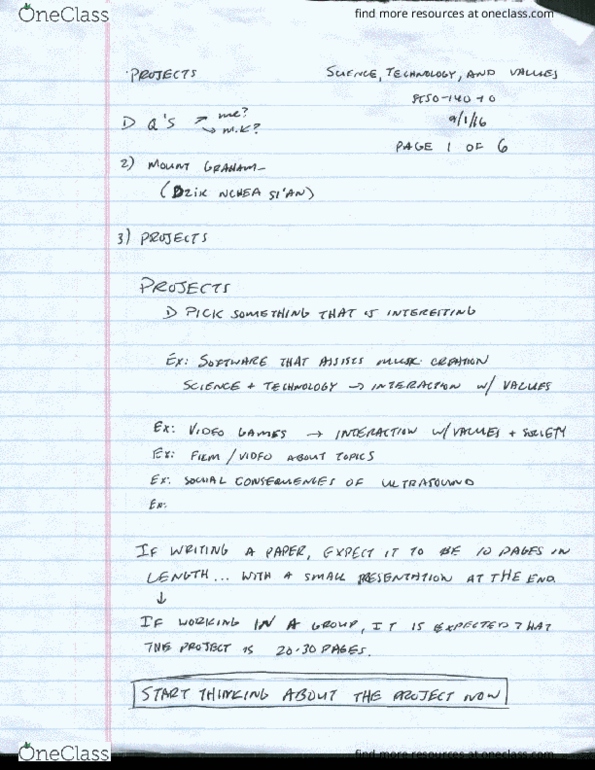 OneClass
find more resources at oneclass.com
PROJECTS
SCIENCE, TECHNOLOGY, AND VALUES
9/1/16
PAGE 1 OF 6
1) Q'S → me?
↘ M.K?
2) MOUNT GRAHAM-
(DZIK NCHEA SI'AN)
3) PROJECTS
PROJECTS
1) PICK SOMETHING THAT IS INTERESTING
EX: SOFTWARE THAT ASSISTS MUSIC CREATION
SCIENCE + TECHNOLOGY → INTERACTION W/ VALUES
EX: VIDEO GAMES → INTERACTION W/VALUES + SOCIETY
EX: FILM/VIDEO ABOUT TOPICS
EX: SOCIAL CONSEQUENCES OF ULTRASOUND
EX:
IF WRITING A PAPER, EXPECT IT TO BE 10 PAGES IN
LENGTH... WITH A SMALL PRESENTATION AT THE END
↓
IF WORKING IN A GROUP, IT IS EXPECTED THAT
THE PROJECT IS 20-30 PAGES.
START THINKING ABOUT THE PROJECT NOW
OneClass
find more resources at oneclass.com